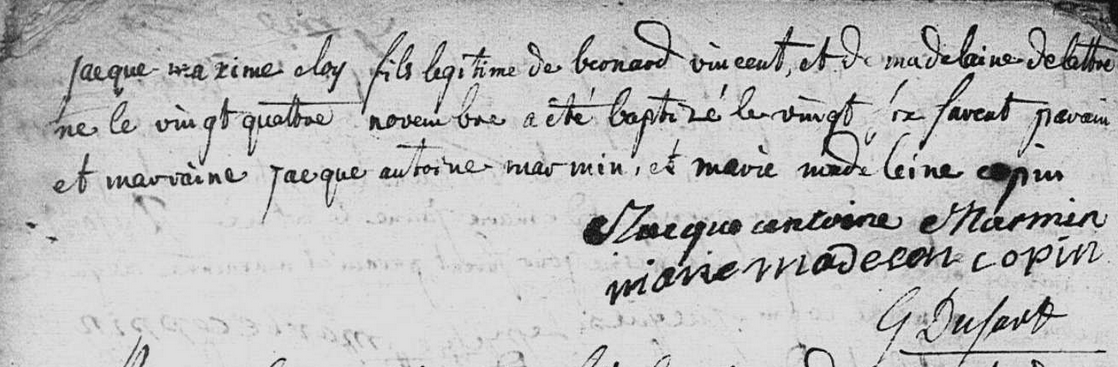 jacque maxime eloy fils legitime de beonard vincent, et de madelaine delattre
ne le vingt quattre novembre a été baptizé le vingt six furent parain
et marraine jacque antoine marmin, et marie madeleine copin
Jacque antoine Marmin
marie madelon copin
G Dufart